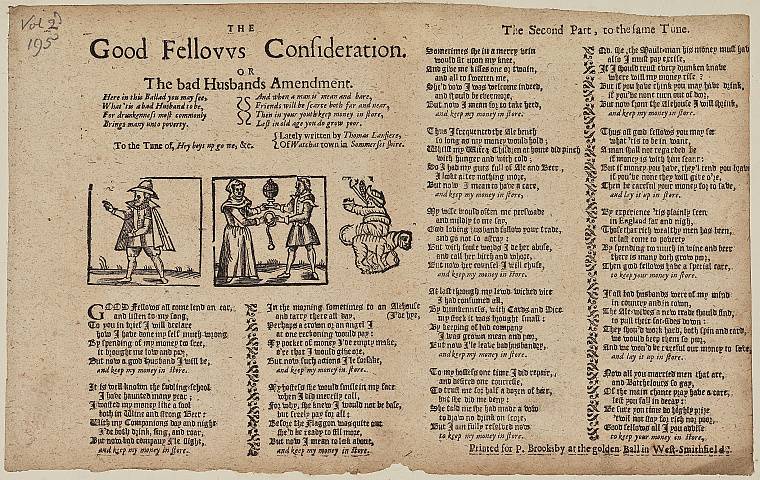 Vol 2
195
THE
Good Fellovvs Consideration.
OR
The bad Husbands Amendment.
Here in this Ballad you may see,
What 'tis a bad Husband to be,
For drunkenness most commonly
Brings many unto poverty.
And when a man is mean and bare,
Friends will be scarce both far and near,
Then in your youth keep money in store,
Lest in old age you do grow poor.
To the Tune of, Hey boys up go me, &c.
Lately written by Thomas Lanfiere,
Of Watchat town in Sommerset shire.
GOOD Fellows all come lend an ear,
and listen to my song,
To you in brief I will declare
how I have done my self much wrong;
By spending of my money to free,
it brought me low and poor,
But now a good Husband I will be,
and keep my money in store.
It is well known the fudling-school
I have haunted many year;
I wasted my money like a fool
both in Wine and strong Beer:
With my Companions day and night
I'de both drink, sing, and roar,
But now bad company I'le slight,
and keep my money in store.
In the morning sometimes to an Alehouse
and tarry there all day, (I'de hye,
Perhaps a crown or an angel I
at one reckoning would pay:
My pocket of money I'de empty make,
o're that I would give o're,
But now such actions I'le forsake,
and keep my money in store.
My hostess she would smile in my face
when I did merrily call,
For why, she knew I would not be base,
but freely pay for all;
Before the Flaggon was quite out
she'd be ready to fill more,
But now I mean to look about,
and keep my money in store.
The Second Part, to the same Tune.
Sometimes she in a merry vein
would sit upon my knee,
And give me kisses one or twain,
and all to sweeten me,
She'd vow I was welcome indeed,
and should be evermore,
But now I mean for to take heed,
and keep my money in store.
Thus I frequented the Ale bench
so long as my money would hold;
Whilst my Wife & Children at home did pinch
with hunger and with cold;
So I had my guts full of Ale and Beer,
I lookt after nothing more,
But now I mean to have a care,
and keep my money in store,
My wife would often me perswade
and mildly to me say,
Good loving husband follow your trade,
and go not so astray:
But with foule words I'de her abuse,
and call her bitch and whore,
But now her counsel I will chuse,
and keep my money in store.
At last through my lewd wicked vice
I had consumed all,
By drunkenness, with Cards and Dice
my stock it was brought small:
By keeping of bad company
I was grown mean and poor,
But now I'le leave bad husbandry,
and keep my money in store.
To my hostess one time I did repair,
and desired one courtesie,
To trust me for half a dozen of beer,
but she did me deny:
She told me she had made a vow
to draw no drink on score,
But I am fully resolved now
to keep my money in store.
And she, the Maultman his money must have
also I must pay excise,
If I should trust every drunken knave
where will my money rise?
But if you have think you may have drink,
if you've none turn out of door,
But now from the Alehouse I will shrink,
and keep my money in store,
Thus all good fellows you may see
what 'tis to be in want,
A man shall not regarded be
if money with him scant:
But if money you have, they'l tend you brave
if you've none they will give o're,
Then be careful your money for to save,
and lay it up in store.
By experience 'tis plainly seen
in England far and nigh,
Those that rich wealthy men has been,
at last come to poverty
By spending too much in wine and beer
there is many both grow poor,
Then good fellows have a special care,
and keep your money in store.
If all bad husbands were of my mind
in country and in town,
The Ale-wives a new trade should find,
to pull their fat sides down:
They should work hard, both spin and card,
we would keep them so poor,
And we wou'd be careful our money to save,
and lay it up in store.
Now all you married men that are,
and Batchelours so gay,
Of the main chance pray have a care,
lest you fall in decay:
Be sure you time do highly prize
'twill not stay for rich nor poor,
Good fellows all I you advise
to keep your money in store,
Printed for P. Brooksby at the golden Ball in West-Smithfield: